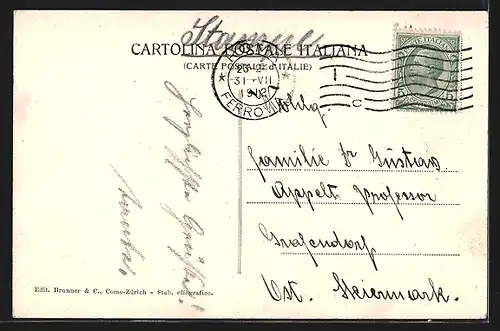 Stampe
CARTOLINA POSTALE ITALIANA
(CARTE POSTALE d'ITALIE)
31 VII
FERROVIA
Familie Dr Gustav
Appelt Professor
Grafendorf
Ost. Steiermark.
Herzlichsten Grüße!
Edit. Brunner & C., Como-Zürich - Stab. eliografico.